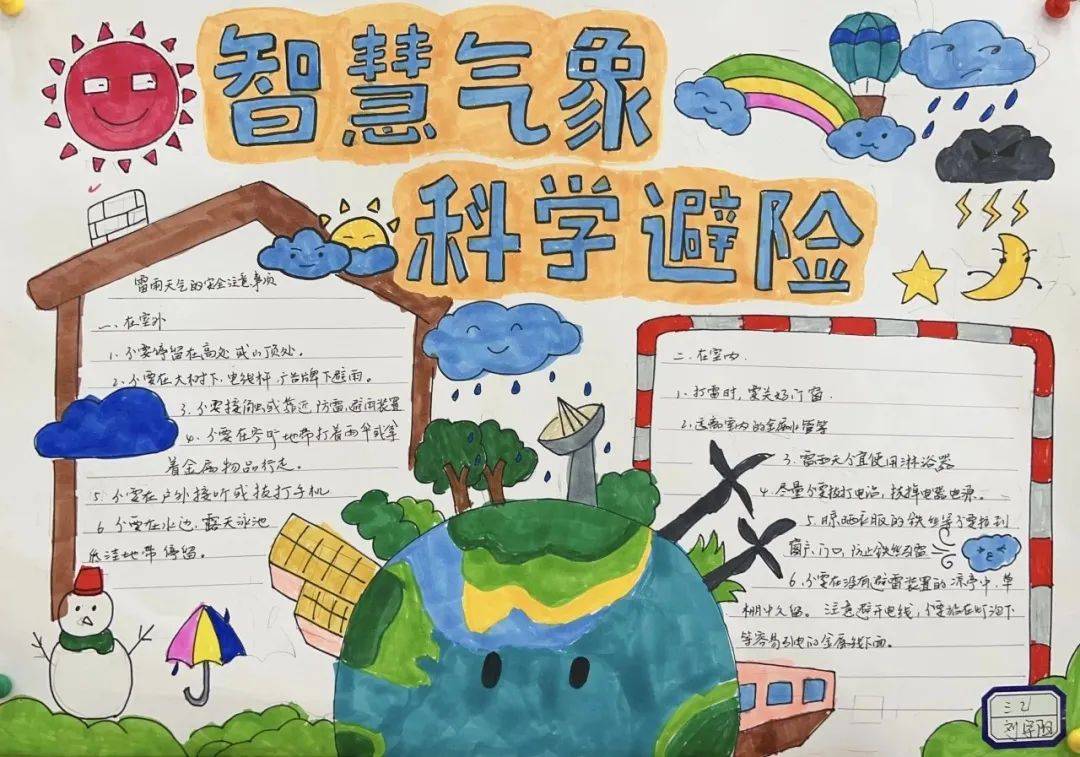 智慧气象
科学避险
雷雨天气的安全注意事项
一、在室外
1、不要停留在高处或山顶处。
2、不要在大树下、电线杆、广告牌下避雨。
3、不要接触或靠近防雷避雨装置
4、不要在空旷地带打着雨伞或拿
着金属物品行走。
5、不要在户外接听或拨打手机
6、不要在水边、露天泳池
低洼地带停留。
二、在室内
1、打雷时，要关好门窗。
2、远离室内的金属水管等
3、雷雨天不宜使用淋浴器
4、尽量不要拨打电话，拔掉电器电源。
5、晾晒衣服的铁丝等不要拉到
窗户、门口，防止铁丝引雷
6、不要在没有避雷装置的凉亭中、草
棚中久留。注意避开电线，不要站在灯泡下
等容易引电的金属线下面。
三2
刘